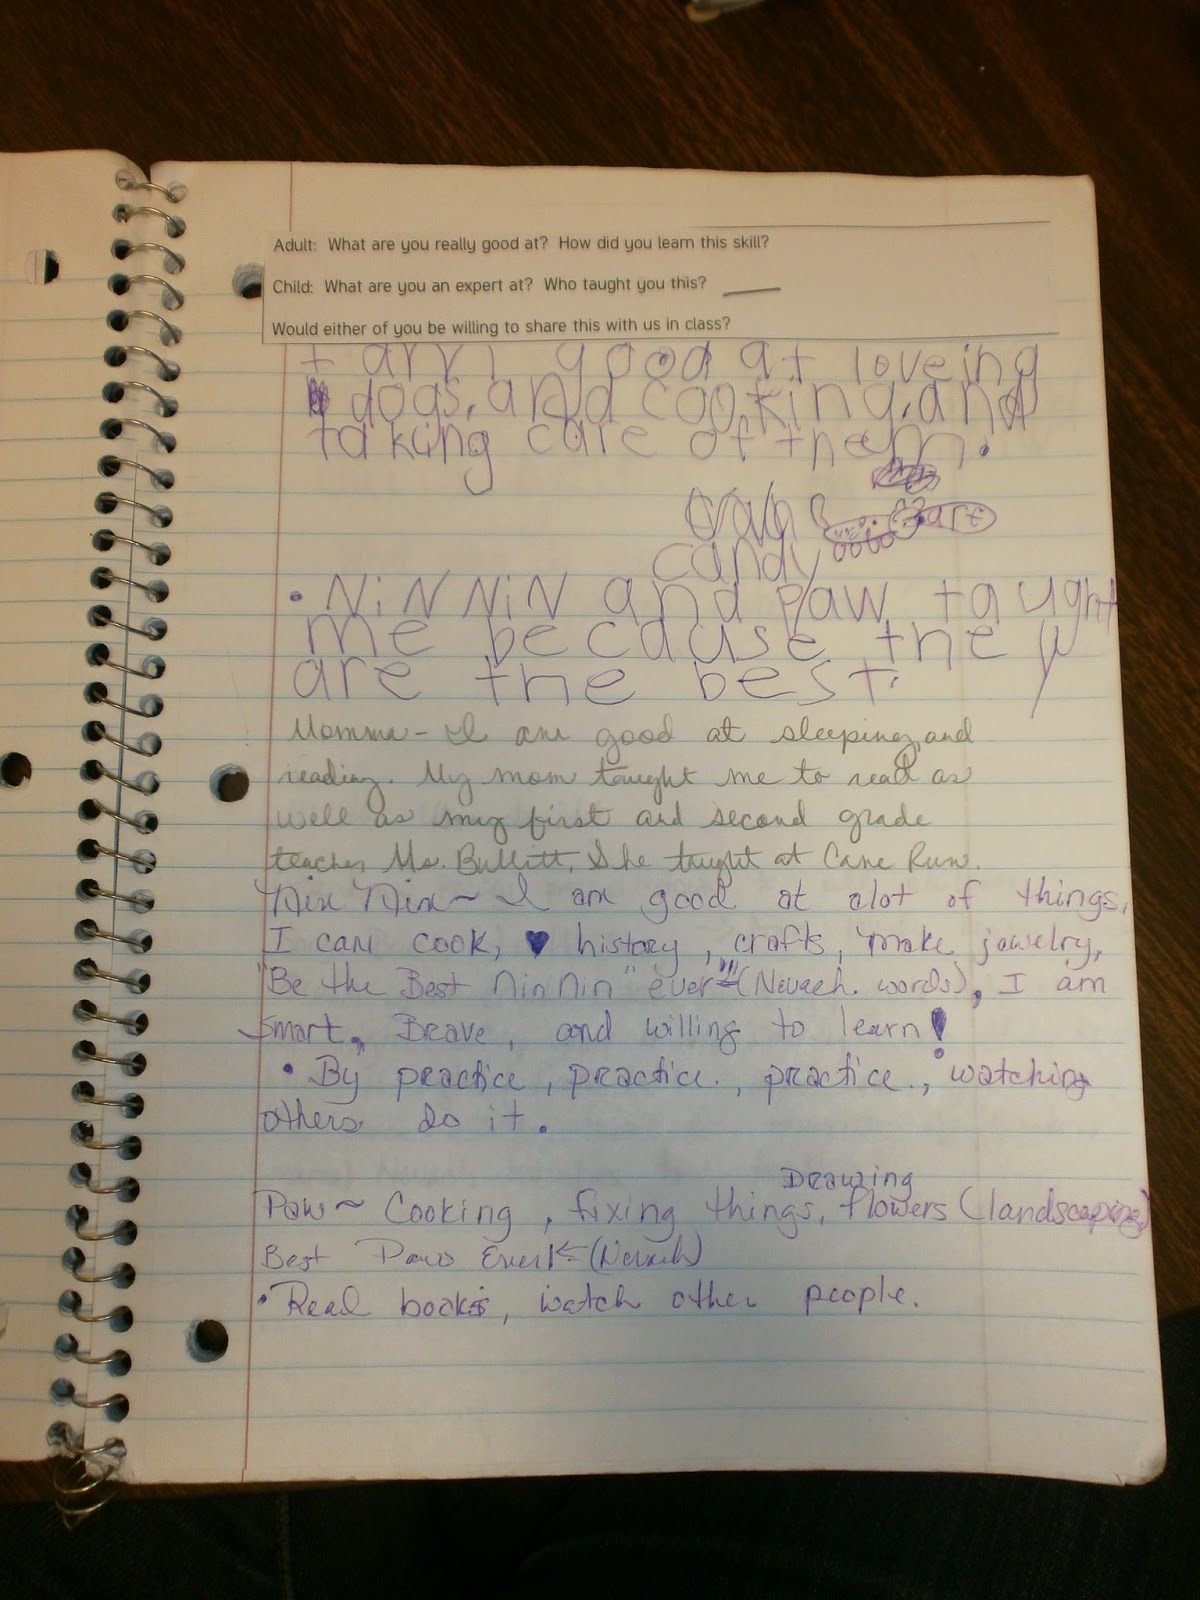 Adult: What are you really good at? How did you learn this skill?
Child: What are you an expert at? Who taught you this?
Would either of you be willing to share this with us in class?
I am good at loveing
dogs, and cooking, and
taking care of them.
candy
• NiN NiN and paw taught
me because they
are the best.
Momma - I am good at sleeping and
reading. My mom taught me to read as
well as my first and second grade
teacher Ms. Bullitt. She taught at Cane Run.
Nin Nin ~ I am good at alot of things,
I can cook, ♥ history, crafts, make jewelry,
"Be the Best Nin Nin" ever!!! (Nevaeh. words), I am
Smart, Brave, and willing to learn!
• By practice, practice, practice, watching
others do it.
Drawing
Paw ~ Cooking, fixing things, flowers (landscaping)
Best Paw Ever! ← (Nevaeh)
• Read books, watch other people.